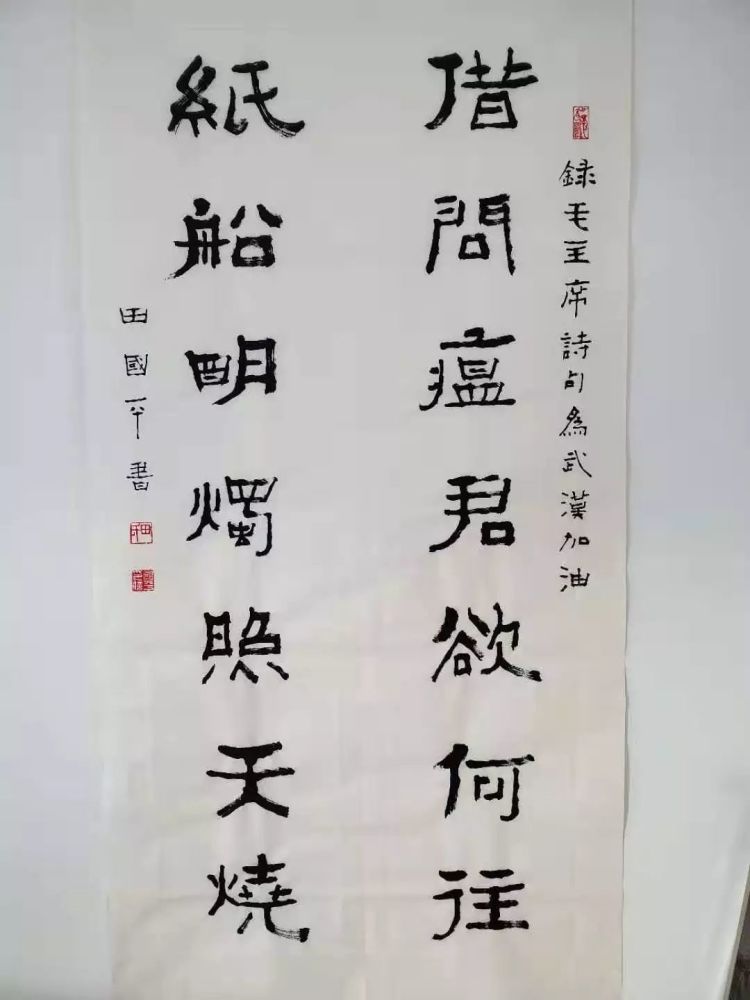 録毛主席詩句為武漢加油
借問瘟君欲何往
紙船明燭照天燒
田國平書